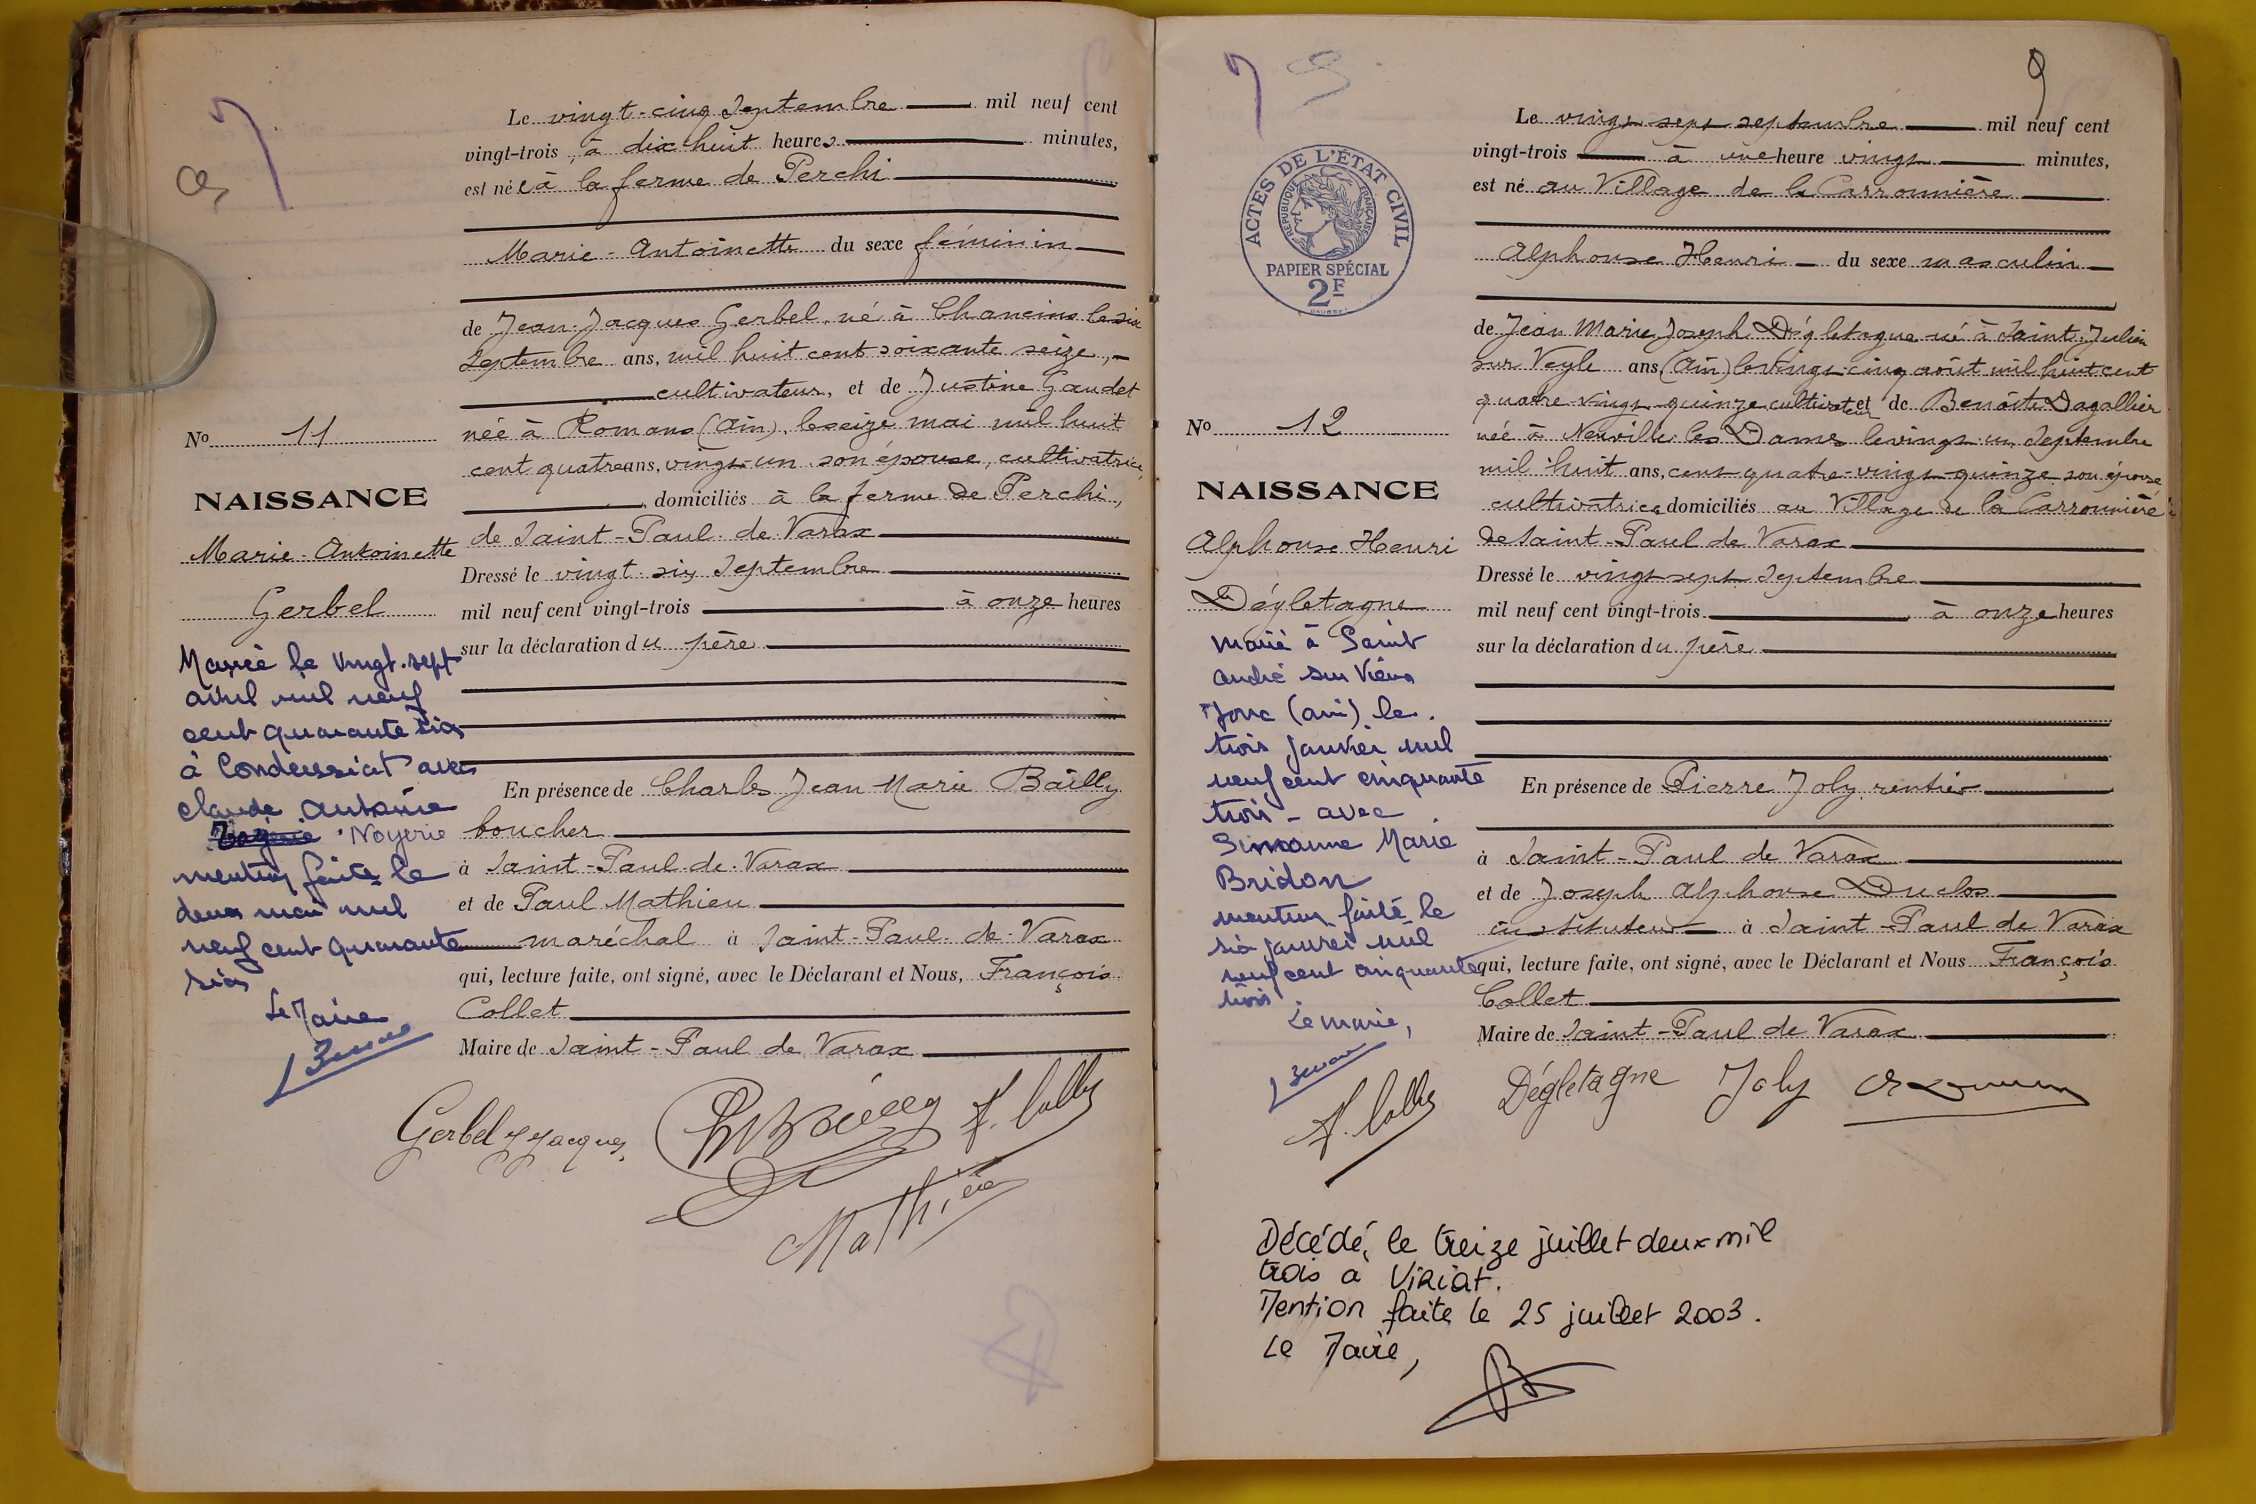 Le vingt-cinq Septembre mil neuf cent
vingt-trois, à dix huit heures minutes,
est née à la ferme de Perchi
Marie-Antoinette du sexe féminin
de Jean-Jacques Gerbel, né à Chaneins le six
Septembre ans, mil huit cent soixante seize,
cultivateur, et de Justine Gaudet
née à Romans (Ain), le seize mai mil huit
cent quatre ans, vingt-un son épouse, cultivatrice,
domiciliés à la ferme de Perchi,
de Saint-Paul-de-Varax
Dressé le vingt-six Septembre
mil neuf cent vingt-trois à onze heures
sur la déclaration du père
En présence de Charles Jean Marie Bailly
boucher
à Saint-Paul-de-Varax
et de Paul Mathieu
maréchal à Saint-Paul-de-Varax
qui, lecture faite, ont signé, avec le Déclarant et Nous, François
Collet
Maire de Saint-Paul de Varax
Gerbel J Jacques
F. Collet
Mathieu
No 11
NAISSANCE
Marie-Antoinette
Gerbel
Mariée le vingt-sept
avril mil neuf
cent quarante six
à Condeissiat avec
Claude Antoine
Noyerie
mention faite le
deux mai mil
neuf cent quarante
six
Le Maire
9
Le vingt sept septembre mil neuf cent
vingt-trois à une heure vingt minutes,
est né au Village de la Carronnière
Alphonse Henri du sexe masculin
de Jean Marie Joseph Dégletagne né à Saint-Julien
sur Veyle ans, (Ain) le vingt-cinq août mil huit cent
quatre-vingt-quinze cultivateur et de Benoîte Dagallier
née à Neuville les Dames le vingt un Septembre
mil huit ans, cent quatre-vingt-quinze son épouse
cultivatrice domiciliés au Village de la Carronnière
de Saint-Paul de Varax
Dressé le vingt sept Septembre
mil neuf cent vingt-trois à onze heures
sur la déclaration du père
En présence de Pierre Joly, rentier
à Saint-Paul de Varax
et de Joseph Alphonse Duclos
instituteur à Saint-Paul de Varax
qui, lecture faite, ont signé, avec le Déclarant et Nous François
Collet
Maire de Saint-Paul de Varax
F. Collet Dégletagne Joly
ACTES DE L'ÉTAT CIVIL
RÉPUBLIQUE FRANÇAISE
PAPIER SPÉCIAL
2F
No 12
NAISSANCE
Alphonse Henri
Dégletagne
marié à Saint
André sur Vieux
Jonc (ain) le
trois janvier mil
neuf cent cinquante
trois - avec
Simonne Marie
Bridon
mention faite le
six janvier mil
neuf cent cinquante
trois
Le maire,
Décédé, le treize juillet deux mil
trois à Viriat.
Mention faite le 25 juillet 2003.
Le Maire,